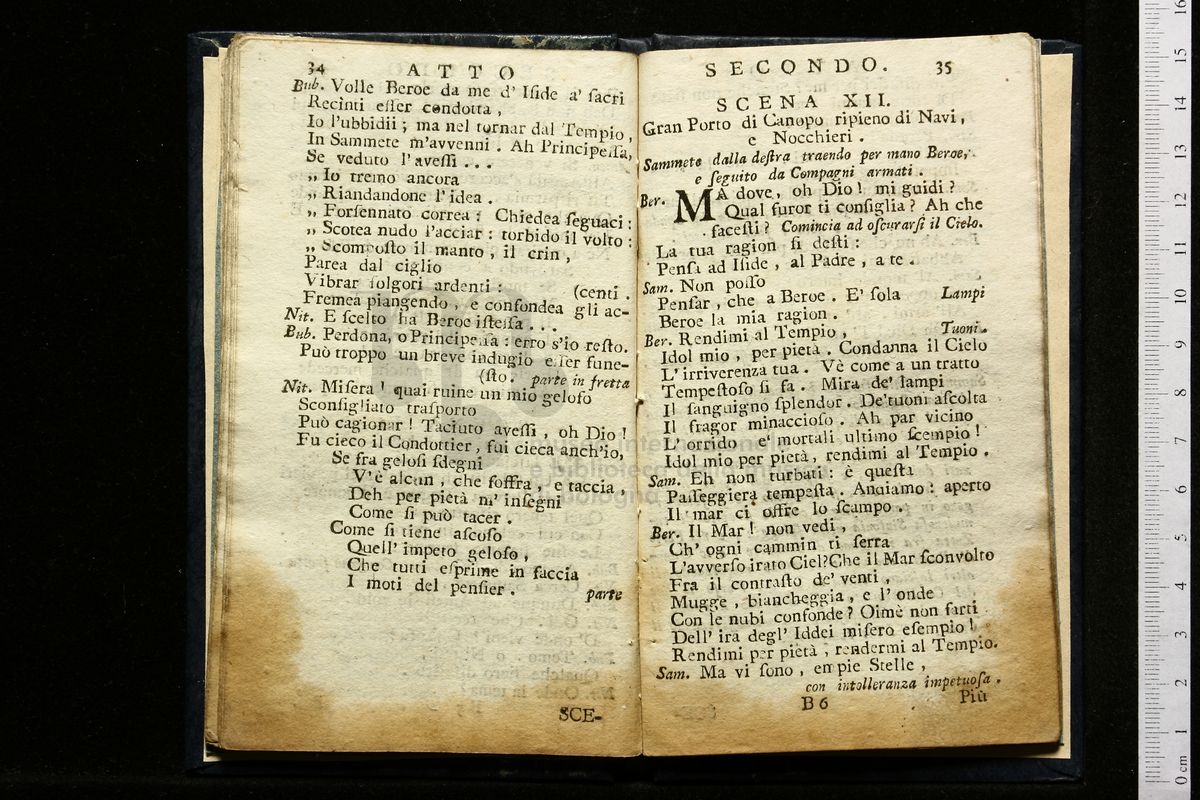 34 ATTO
Bub. Volle Beroe da me d' Iſide a' ſacri
Recinti eſſer condotta,
Io l'ubbidii; ma nel tornar dal Tempio,
In Sammete m'avvenni. Ah Principeſſa,
Se veduto l'aveſſi...
„ Io tremo ancora
„ Riandandone l'idea.
„ Forſennato correa: Chiedea ſeguaci:
„ Scotea nudo l'acciar: torbido il volto:
„ Scompoſto il manto, il crin,
Parea dal ciglio
Vibrar folgori ardenti: (centi.
Fremea piangendo, e confondea gli ac-
Nit. E ſcelto ha Beroe iſteſſa...
Bub. Perdona, o Principeſſa: erro s'io reſto.
Può troppo un breve indugio eſſer fune-
(ſto. parte in fretta
Nit. Miſera! quai ruine un mio geloſo
Sconſigliato traſporto
Può cagionar! Taciuto aveſſi, oh Dio!
Fu cieco il Condottier, fui cieca anch'io,
Se fra geloſi ſdegni
V'è alcun, che ſoffra, e taccia,
Deh per pietà m' inſegni
Come ſi può tacer.
Come ſi tiene aſcoſo
Quell' impeto geloſo,
Che tutti eſprime in faccia
I moti del penſier. parte
SCE-
SECONDO. 35
SCENA XII.
Gran Porto di Canopo ripieno di Navi,
e Nocchieri.
Sammete dalla deſtra traendo per mano Beroe,
e ſeguito da Compagni armati.
Ber. MA dove, oh Dio! mi guidi?
Qual furor ti conſiglia? Ah che
faceſti? Comincia ad oſcurarſi il Cielo.
La tua ragion ſi deſti:
Penſa ad Iſide, al Padre, a te.
Sam. Non poſſo
Penſar, che a Beroe. E' ſola Lampi
Beroe la mia ragion.
Ber. Rendimi al Tempio, Tuoni.
Idol mio, per pietà. Condanna il Cielo
L' irriverenza tua. Vè come a un tratto
Tempeſtoſo ſi fa. Mira de' lampi
Il ſanguigno ſplendor. De'tuoni aſcolta
Il fragor minaccioſo. Ah par vicino
L' orrido e' mortali ultimo ſcempio!
Idol mio per pietà, rendimi al Tempio.
Sam. Eh non turbati: è queſta
Paſſeggiera tempeſta. Andiamo: aperto
Il mar ci offre lo ſcampo.
Ber. Il Mar! non vedi,
Ch' ogni cammin ti ſerra
L'avverſo irato Ciel? Che il Mar ſconvolto
Fra il contraſto de' venti,
Mugge, biancheggia, e l' onde
Con le nubi confonde? Oimè non farti
Dell' ira degl' Iddei miſero eſempio!
Rendimi per pietà, rendermi al Tempio.
Sam. Ma vi ſono, empie Stelle,
con intolleranza impetuoſa.
B 6 Più